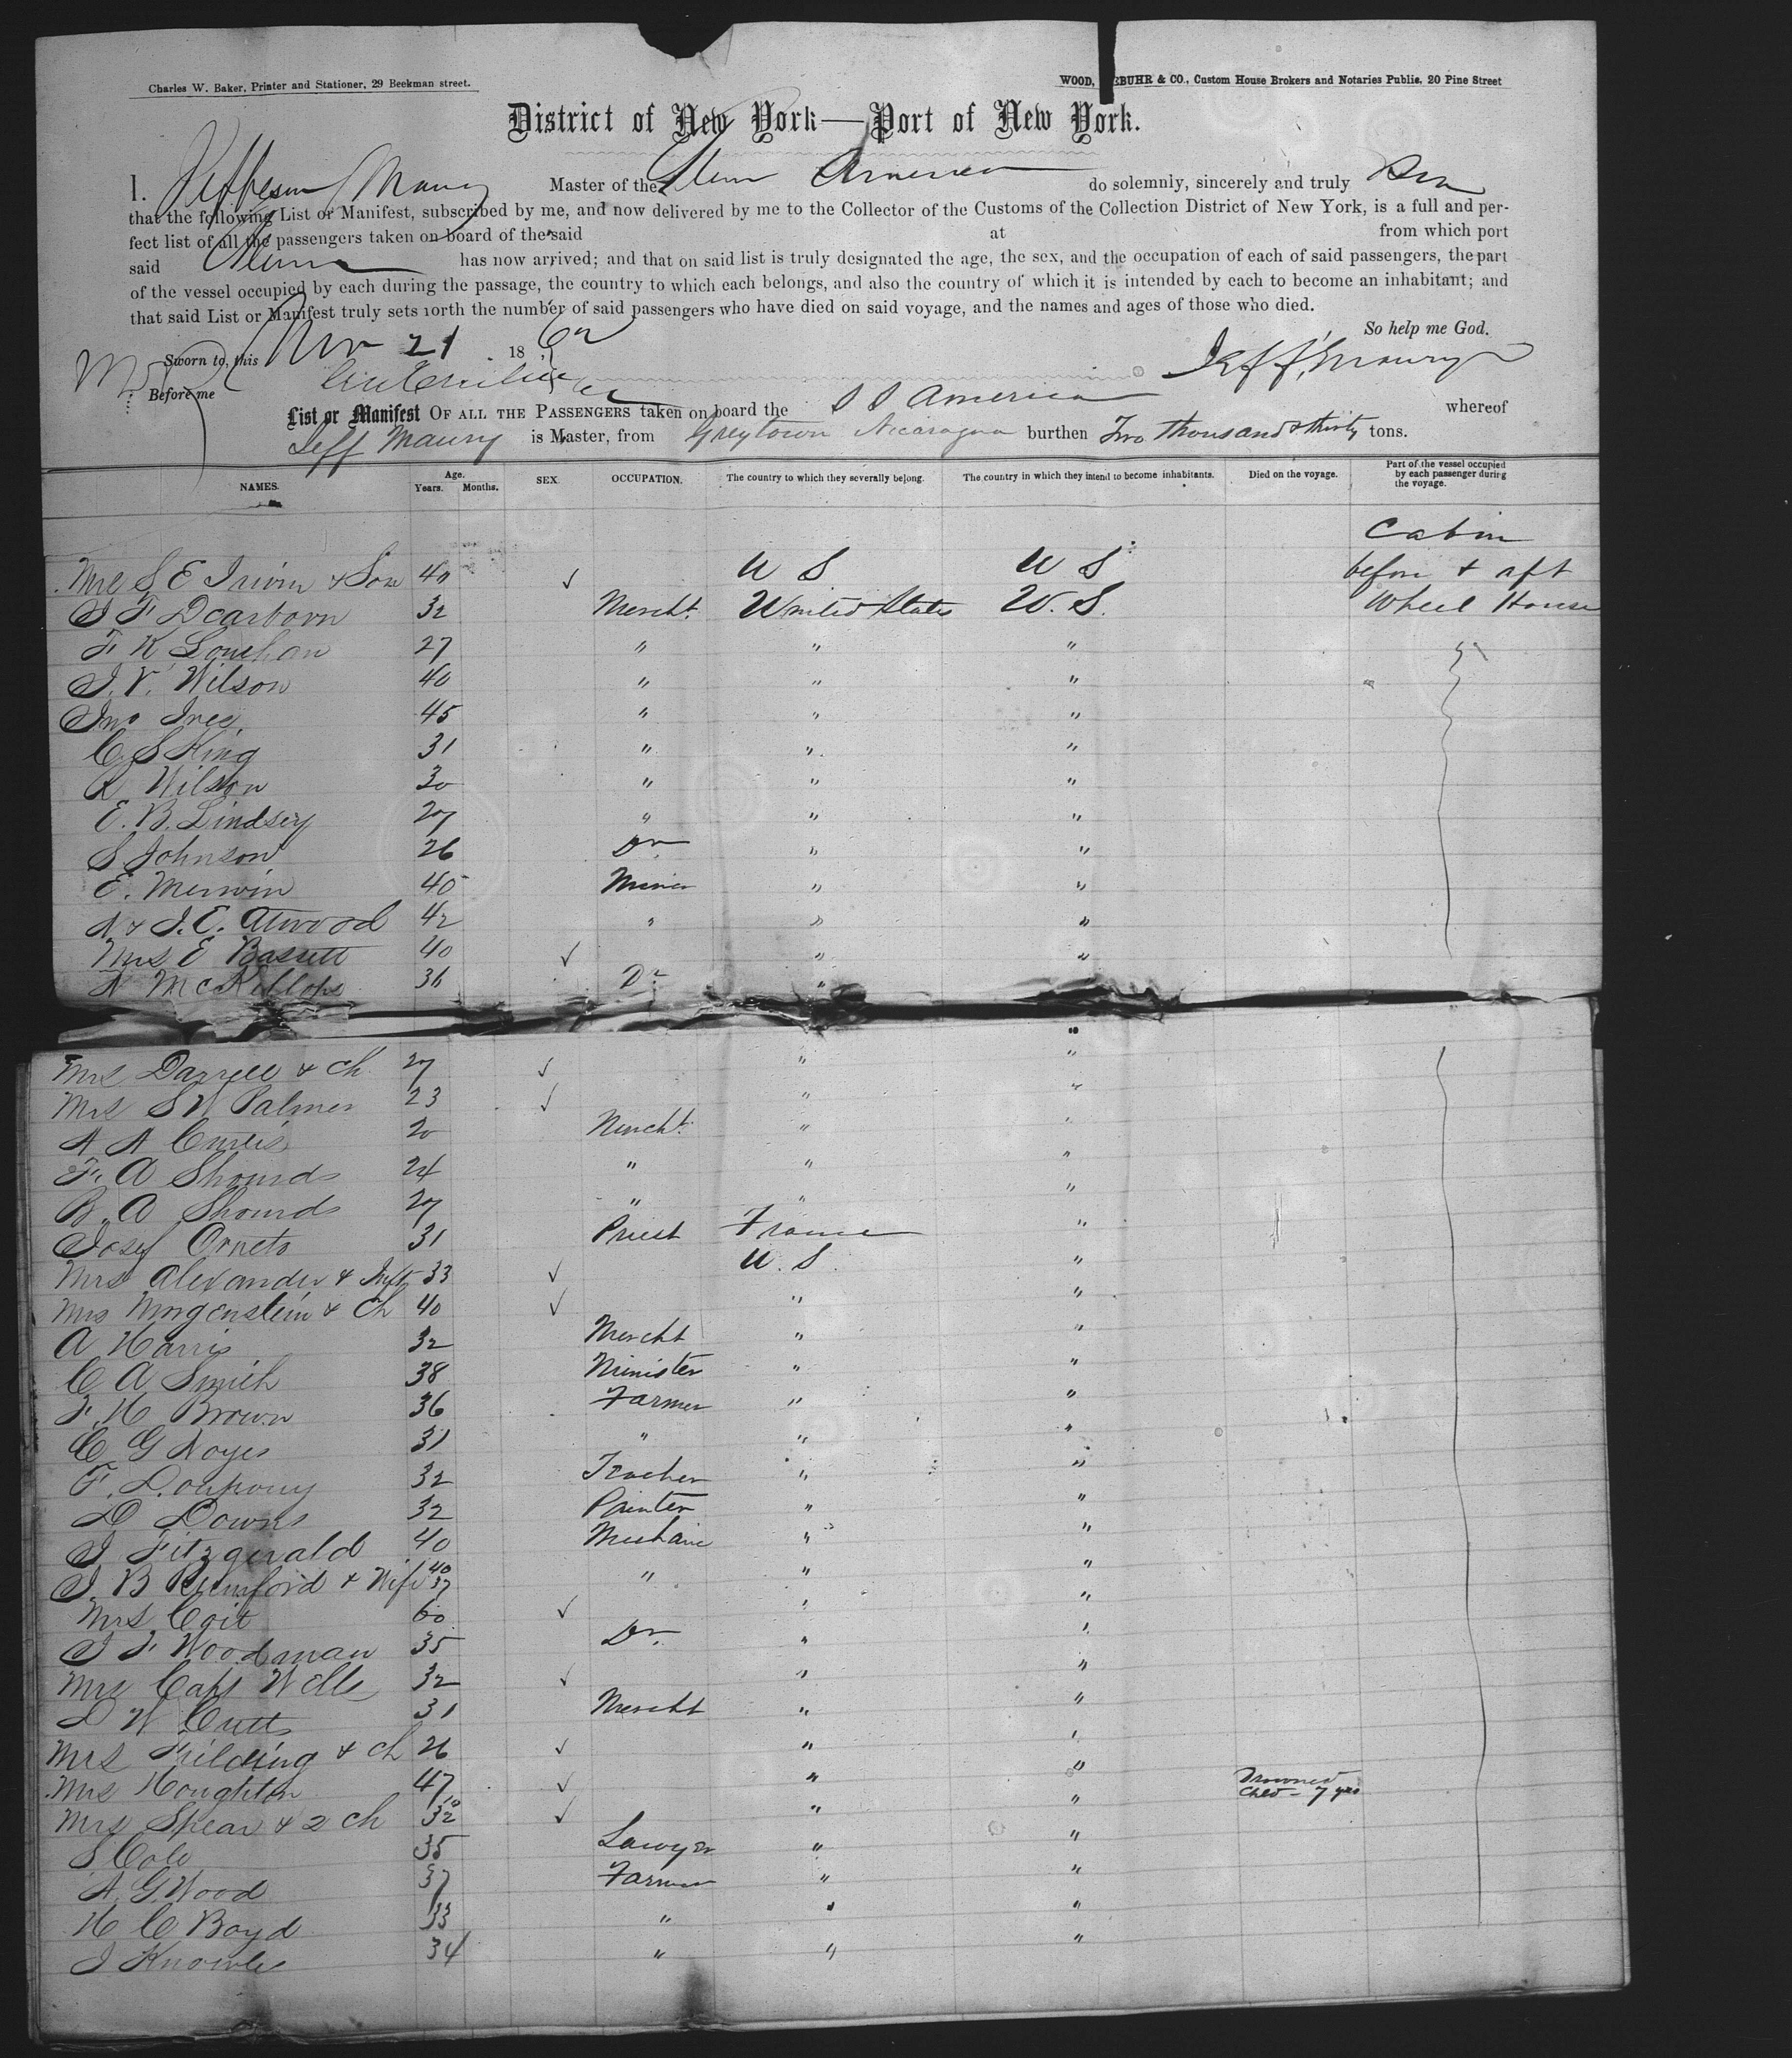 Charles W. Baker, Printer and Stationer, 29 Beekman street.
WOOD, EBUHR & CO., Custom House Brokers and Notaries Public, 20 Pine Street
District of New York—Port of New York.
I, Jefferson Maury Master of the America do solemnly, sincerely and truly
that the following List or Manifest, subscribed by me, and now delivered by me to the Collector of the Customs of the Collection District of New York, is a full and per-
fect list of all the passengers taken on board of the said at from which port
said has now arrived; and that on said list is truly designated the age, the sex, and the occupation of each of said passengers, the part
of the vessel occupied by each during the passage, the country to which each belongs, and also the country of which it is intended by each to become an inhabitant; and
that said List or Manifest truly sets forth the number of said passengers who have died on said voyage, and the names and ages of those who died.
So help me God.
Sworn to, this Nov 21 18
Jeff, Maury
Before me
List or Manifest OF ALL THE PASSENGERS taken on board the S S America whereof
Jeff Maury is Master, from Greytown Nicaragua burthen Two thousand & thirty tons.
NAMES. Age. Years. Months. SEX. OCCUPATION. The country to which they severally belong. The country in which they intend to become inhabitants. Died on the voyage. Part of the vessel occupied by each passenger during the voyage.
Cabin
Mrs S E Irwin & Son 40 ✓ U S U S before & aft
J F Dearborn 32 Mercht. United States U. S. Wheel House
F K 27 " " "
J. V. Wilson 40 " " "
Jno 45 " " "
C. S King 31 " " "
R Wilson 30 " " "
E. B. Lindsey 27 " " "
S Johnson 26 Dr " "
E. Merwin 40 Miner " "
A & J. E. Atwood 42 " " "
Mrs E Bassett 40 ✓ " "
A McKillops 36 Dr " "
Mrs Darrell & ch 27 ✓ " "
Mrs S W Palmer 23 ✓ " "
A A Curtis 20 Mercht. " "
F. A Shourds 24 " " "
B. A Shourds 27 " " "
Josef Orneto 31 Priest France "
Mrs Alexander & 33 ✓ U. S. "
Mrs Morgenstein & Ch 40 ✓ " "
A Harris 32 Mercht " "
C A Smith 38 Minister " "
F. H Brown 36 Farmer " "
C G Noyes 31 " " "
F. 32 Teacher " "
D Downs 32 Painter " "
J Fitzgerald 40 Mechanic " "
J B Rumford & Wife 40 37 " " "
Mrs Coit 60 ✓ " "
J F Woodman 35 Dr. " "
Mrs Capt Wells 32 ✓ " "
D W Cutts 31 Mercht " "
Mrs Fielding & ch 26 ✓ " "
Mrs Houghton 47 ✓ " " Drowned
Mrs Spear & 2 ch 32 10 ✓ " " Child - 7 yrs
S Cole 35 Lawyer " "
A. G. Wood 37 Farmer " "
H C Boyd 33 " " "
J Knowles 34 " " "